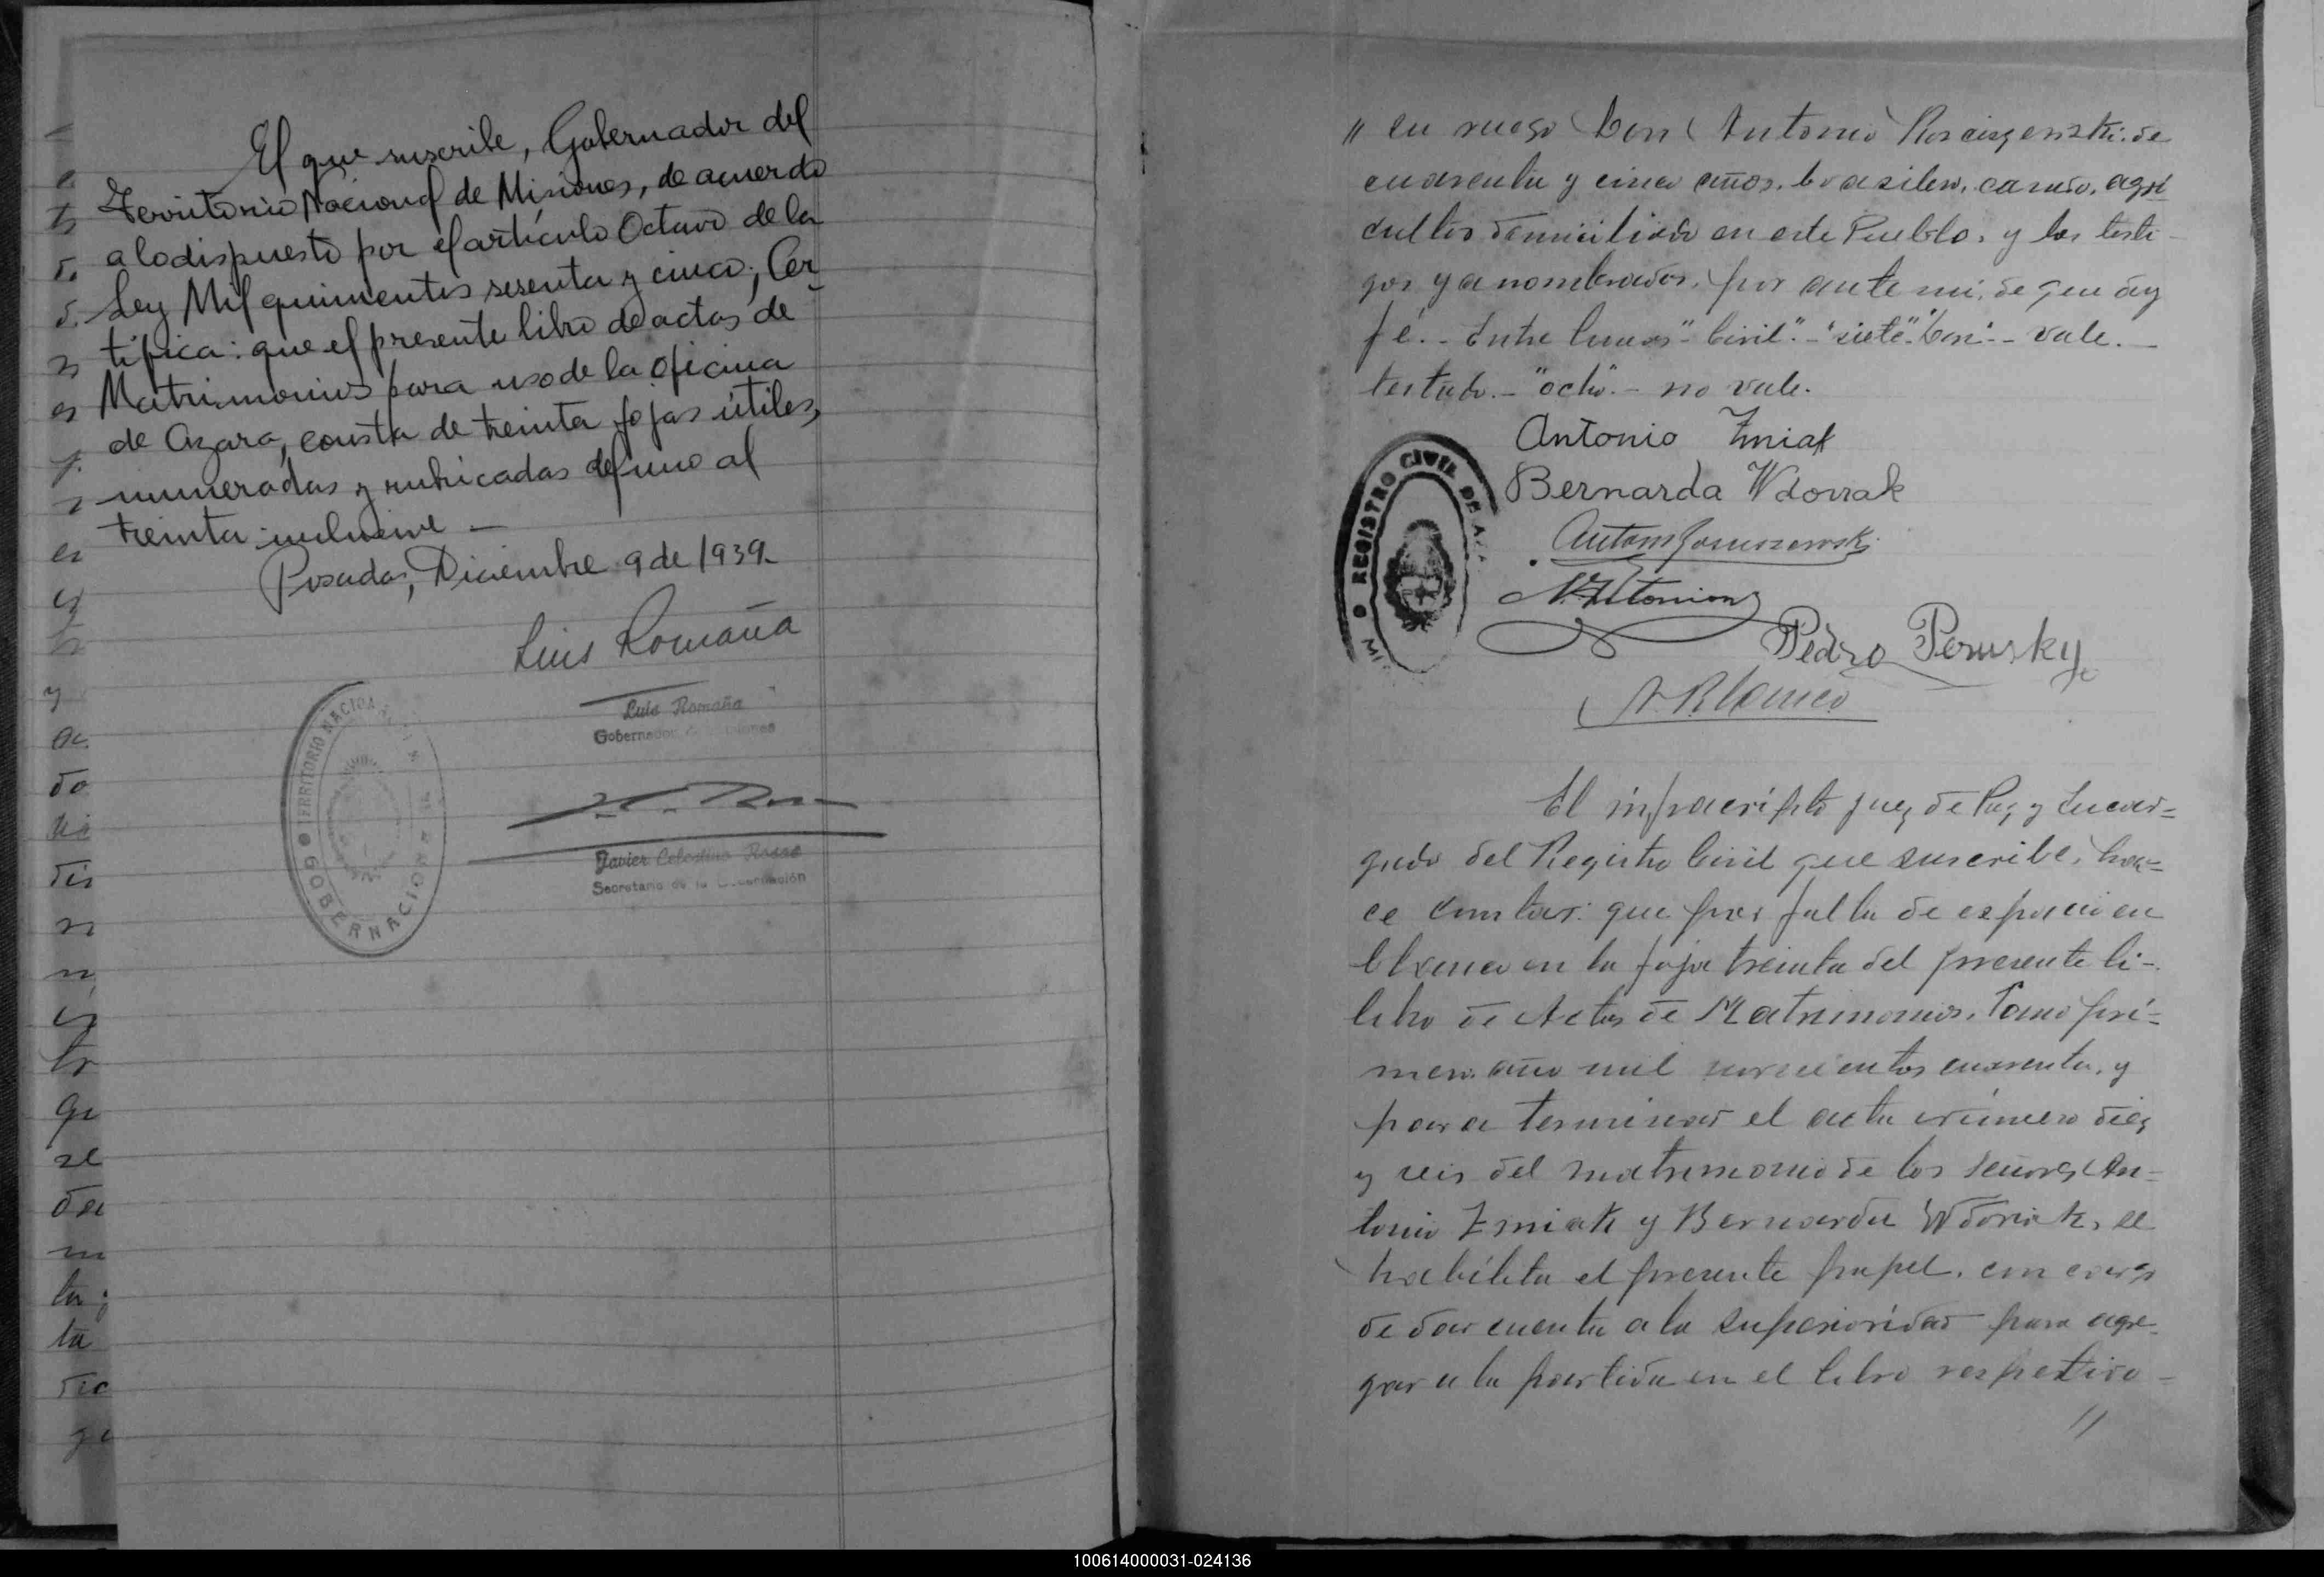 El que suscribe, Gobernador del
Territorio Nacional de Misiones, de acuerdo
a lo dispuesto por el artículo Octavo de la
Ley Mil quinientos sesenta y cinco; Cer-
tifica: que el presente libro de actas de
Matrimonios para uso de la oficina
de Azara, consta de treinta fojas útiles,
numeradas y rubricadas del uno al
treinta inclusive —
Posadas, Diciembre 9 de 1939
Luis Romaña
Luis Romaña
Gobernador de Misiones
TERRITORIO NACIONAL DE
GOBERNACION
Javier Celestino Rosas
Secretario de la Gobernación
" en ruego Don Antonio de
cuarenta y cinco años, brasilero, casado, agri
cultor domiciliado en este Pueblo, y los testi-
gos ya nombrados, por ante mi, de que doy
fé.- Entre lineas "Civil"- "siete". "Don"- vale.-
testado.- "ocho".- no vale.
Antonio Zmiak
Bernarda Wdoviak
REGISTRO CIVIL DE
Pedro Perusky
A. Blanco
El infrascripto Juez de Paz y Encar=
gado del Registro Civil que suscribe, ha=
ce constar: que por falta de espacio en
blanco en la foja treinta del presente li-
libro de Actas de Matrimonios, Tomo pri=
mero año mil novecientos cuarenta, y
para terminar el acta número diez
y seis del matrimonio de los Señores An=
tonio Zmiak y Bernarda Wdoviak, se
habilita el presente papel, con cargo
de dar cuenta a la Superioridad para agre-
gar a la partida en el libro respetivo =
//
100614000031-024136